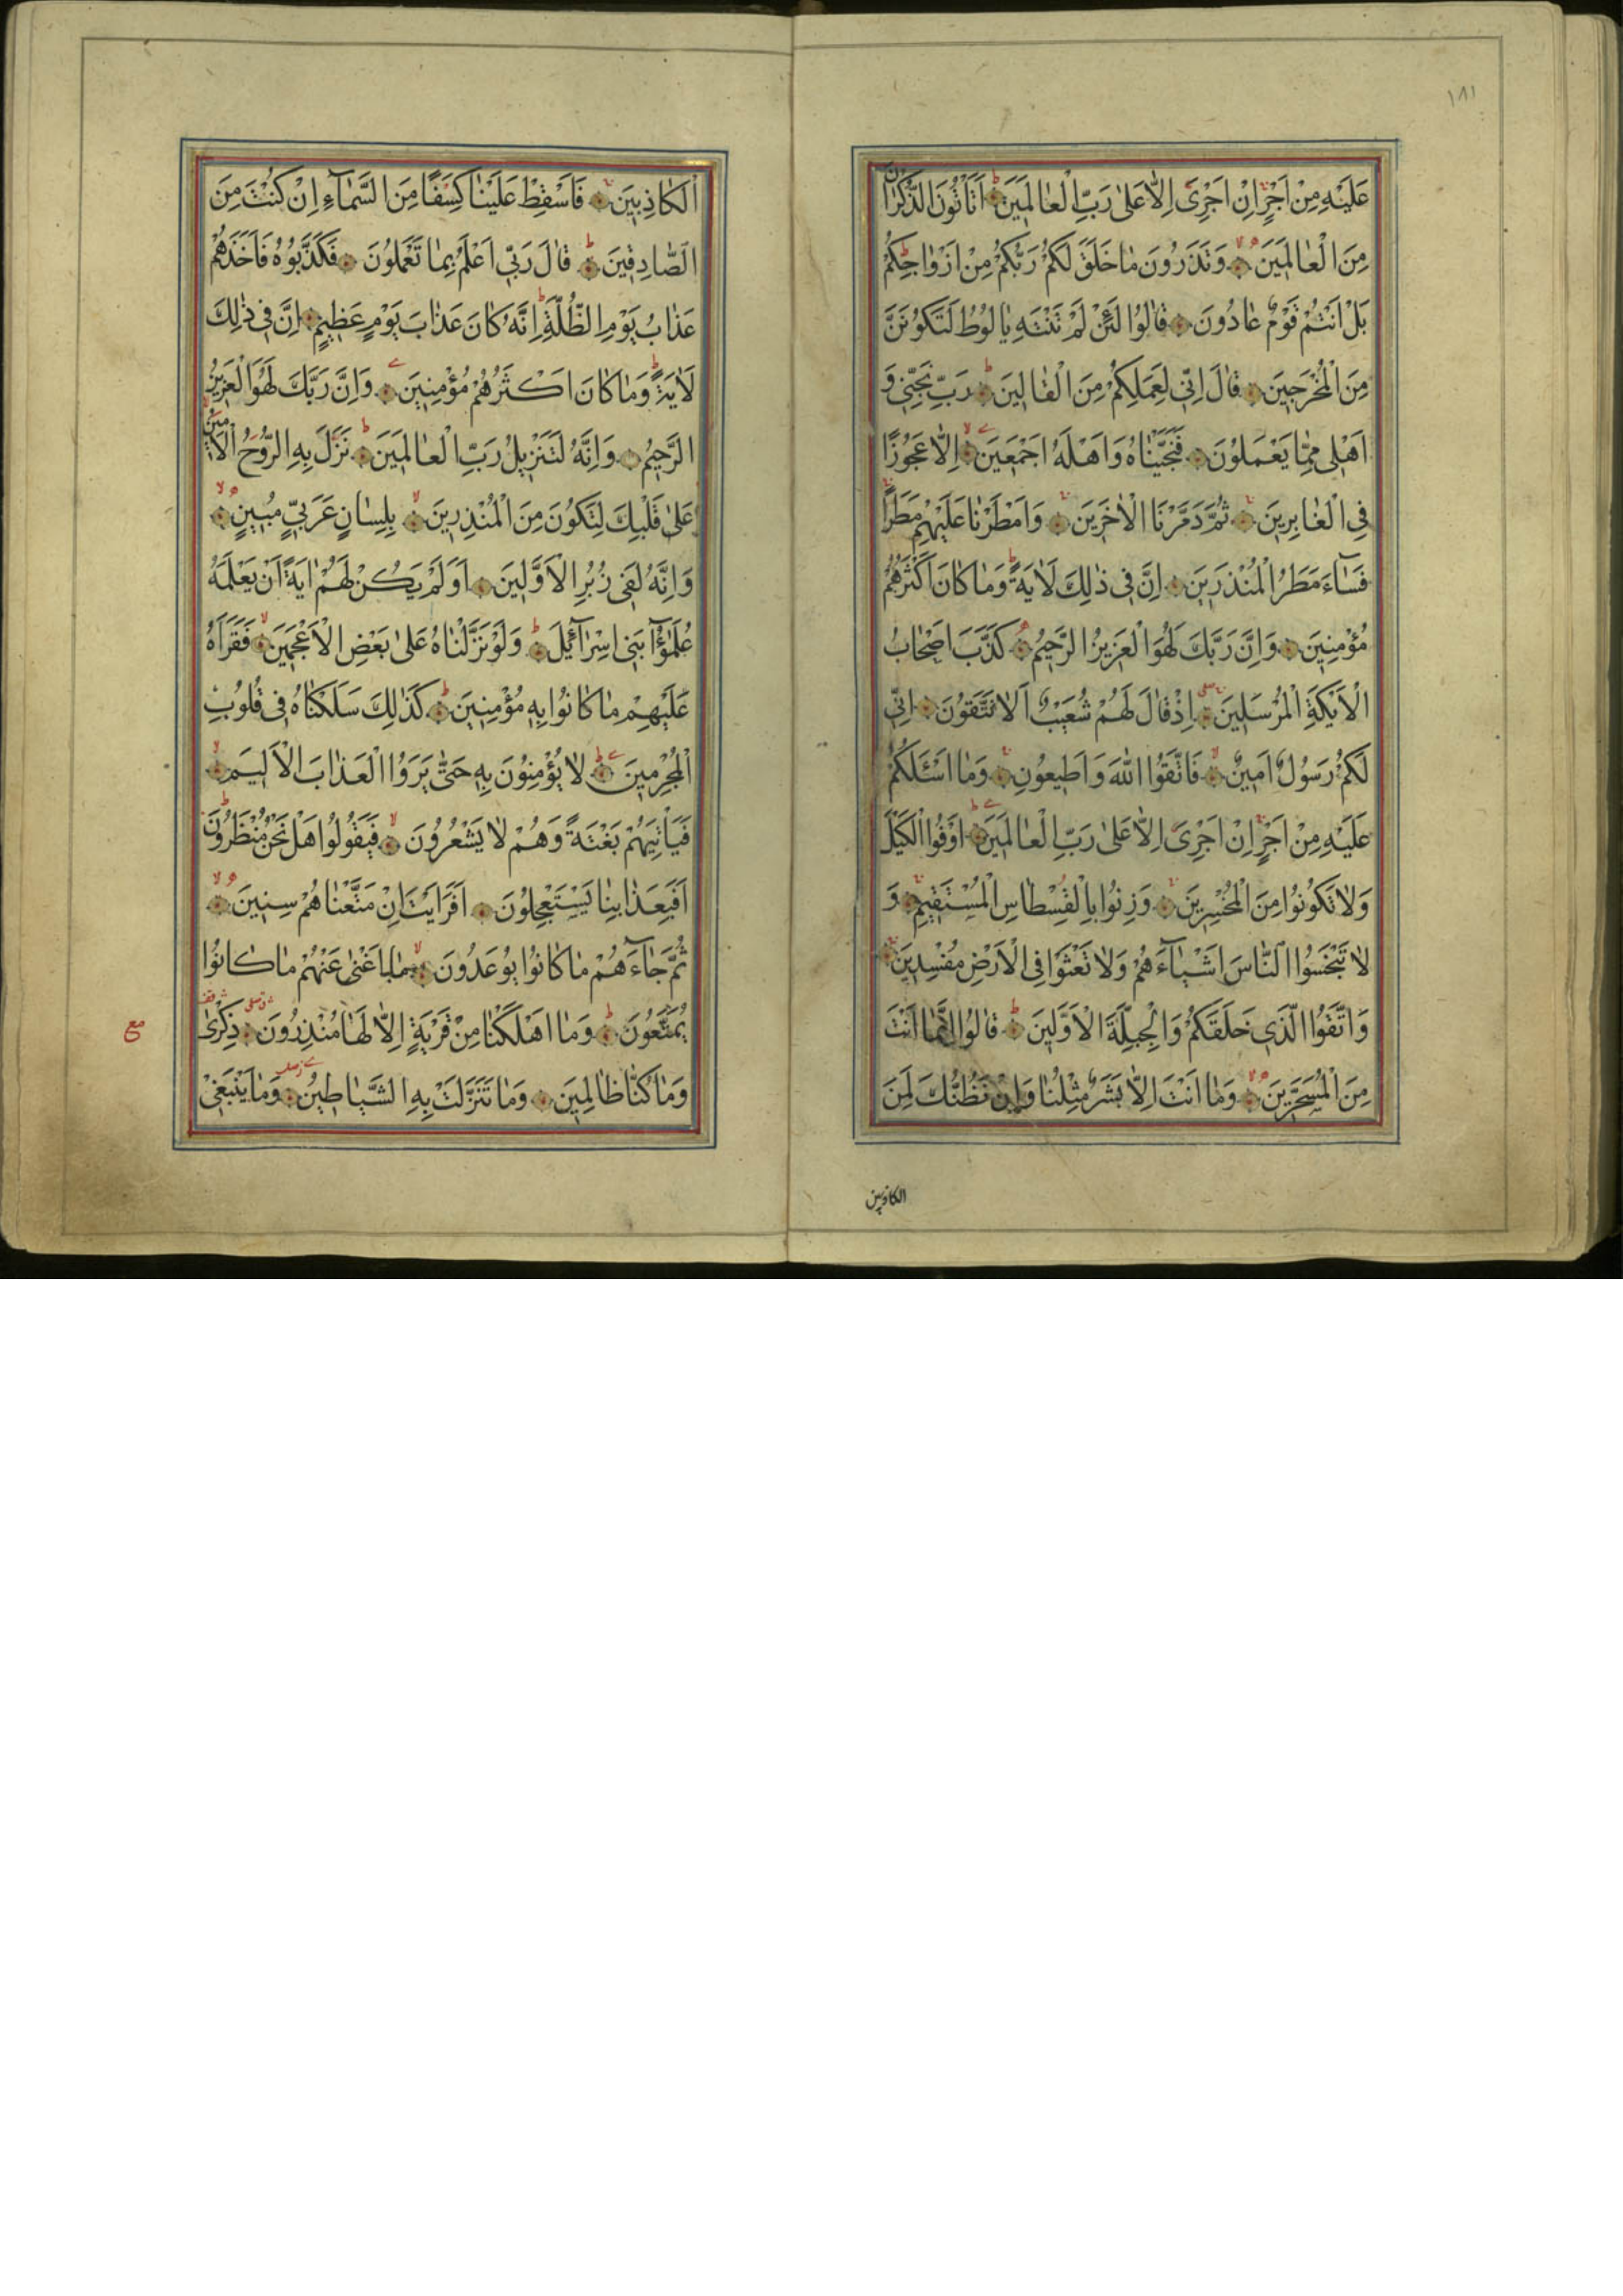 ١٨١
عَلَيْهِ مِنْ اَجْرٍ اِنْ اَجْرِيَ اِلَّا عَلٰى رَبِّ الْعٰالَمِينَ اَتَأْتُونَ الذُّكْرٰانَ
مِنَ الْعٰالَمِينَ وَتَذَرُونَ مٰا خَلَقَ لَكُمْ رَبُّكُمْ مِنْ اَزْوٰاجِكُمْ
بَلْ اَنْتُمْ قَوْمٌ عٰادُونَ قٰالُوا لَئِنْ لَمْ تَنْتَهِ يٰا لُوطُ لَتَكُونَنَّ
مِنَ الْمُخْرَجِينَ قٰالَ اِنِّي لِعَمَلِكُمْ مِنَ الْقٰالِينَ رَبِّ نَجِّنِي وَ
اَهْلِي مِمّٰا يَعْمَلُونَ فَنَجَّيْنٰاهُ وَاَهْلَهُ اَجْمَعِينَ اِلّٰا عَجُوزًا
فِي الْغٰابِرِينَ ثُمَّ دَمَّرْنَا الْاٰخَرِينَ وَاَمْطَرْنٰا عَلَيْهِمْ مَطَرًا
فَسٰآءَ مَطَرُ الْمُنْذَرِينَ اِنَّ فِي ذٰلِكَ لَاٰيَةً وَمٰا كٰانَ اَكْثَرُهُمْ
مُؤْمِنِينَ وَاِنَّ رَبَّكَ لَهُوَ الْعَزِيزُ الرَّحِيمُ كَذَّبَ اَصْحٰابُ
الْاَيْكَةِ الْمُرْسَلِينَ اِذْ قٰالَ لَهُمْ شُعَيْبٌ اَلٰا تَتَّقُونَ اِنِّي
لَكُمْ رَسُولٌ اَمِينٌ فَاتَّقُوا اللّٰهَ وَاَطِيعُونِ وَمٰا اَسْئَلُكُمْ
عَلَيْهِ مِنْ اَجْرٍ اِنْ اَجْرِيَ اِلّٰا عَلٰى رَبِّ الْعٰالَمِينَ اَوْفُوا الْكَيْلَ
وَلٰا تَكُونُوا مِنَ الْمُخْسِرِينَ وَزِنُوا بِالْقِسْطٰاسِ الْمُسْتَقِيمِ وَ
لٰا تَبْخَسُوا النّٰاسَ اَشْيٰآءَهُمْ وَلٰا تَعْثَوْا فِي الْاَرْضِ مُفْسِدِينَ
وَاتَّقُوا الَّذِي خَلَقَكُمْ وَالْجِبِلَّةَ الْاَوَّلِينَ قٰالُوا اِنَّمٰا اَنْتَ
مِنَ الْمُسَحَّرِينَ وَمٰا اَنْتَ اِلّٰا بَشَرٌ مِثْلُنٰا وَاِنْ نَظُنُّكَ لَمِنَ
الكاذبين
الْكٰاذِبِينَ فَاَسْقِطْ عَلَيْنٰا كِسَفًا مِنَ السَّمٰآءِ اِنْ كُنْتَ مِنَ
الصّٰادِقِينَ قٰالَ رَبِّي اَعْلَمُ بِمٰا تَعْمَلُونَ فَكَذَّبُوهُ فَاَخَذَهُمْ
عَذٰابُ يَوْمِ الظُّلَّةِ اِنَّهُ كٰانَ عَذٰابَ يَوْمٍ عَظِيمٍ اِنَّ فِي ذٰلِكَ
لَاٰيَةً وَمٰا كٰانَ اَكْثَرُهُمْ مُؤْمِنِينَ وَاِنَّ رَبَّكَ لَهُوَ الْعَزِيزُ
الرَّحِيمُ وَاِنَّهُ لَتَنْزِيلُ رَبِّ الْعٰالَمِينَ نَزَلَ بِهِ الرُّوحُ الْاَمِينُ
عَلٰى قَلْبِكَ لِتَكُونَ مِنَ الْمُنْذِرِينَ بِلِسٰانٍ عَرَبِيٍّ مُبِينٍ
وَاِنَّهُ لَفِي زُبُرِ الْاَوَّلِينَ اَوَلَمْ يَكُنْ لَهُمْ اٰيَةً اَنْ يَعْلَمَهُ
عُلَمٰٓؤُا بَنِي اِسْرٰآئِيلَ وَلَوْ نَزَّلْنٰاهُ عَلٰى بَعْضِ الْاَعْجَمِينَ فَقَرَاَهُ
عَلَيْهِمْ مٰا كٰانُوا بِهِ مُؤْمِنِينَ كَذٰلِكَ سَلَكْنٰاهُ فِي قُلُوبِ
الْمُجْرِمِينَ لٰا يُؤْمِنُونَ بِهِ حَتّٰى يَرَوُا الْعَذٰابَ الْاَلِيمَ
فَيَأْتِيَهُمْ بَغْتَةً وَهُمْ لٰا يَشْعُرُونَ فَيَقُولُوا هَلْ نَحْنُ مُنْظَرُونَ
اَفَبِعَذٰابِنٰا يَسْتَعْجِلُونَ اَفَرَاَيْتَ اِنْ مَتَّعْنٰاهُمْ سِنِينَ
ثُمَّ جٰآءَهُمْ مٰا كٰانُوا يُوعَدُونَ مٰا اَغْنٰى عَنْهُمْ مٰا كٰانُوا
يُمَتَّعُونَ وَمٰا اَهْلَكْنٰا مِنْ قَرْيَةٍ اِلّٰا لَهٰا مُنْذِرُونَ ذِكْرٰى
مع
وَمٰا كُنّٰا ظٰالِمِينَ وَمٰا تَنَزَّلَتْ بِهِ الشَّيٰاطِينُ وَمٰا يَنْبَغِي